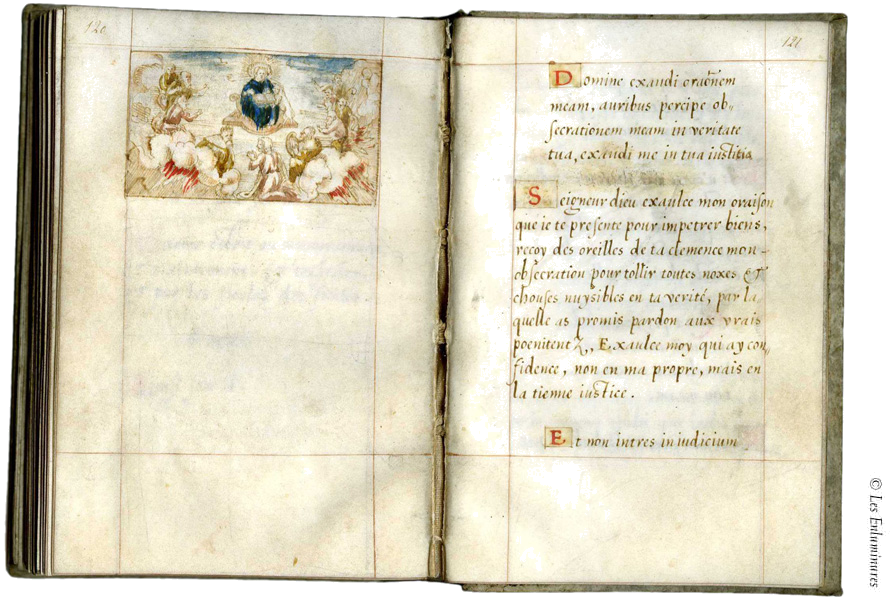 120
121
Domine exaudi oraõnem
meam, auribus percipe ob„
secrationem meam in veritate
tua, exaudi me in tua iustitia
Seigneur dieu exaulce mon oraison
que ie te presente pour impetrer biens,
recoy des oreilles de ta clemence mon-
obsecration pour tollir toutes noxes &
chouses nuysibles en ta verité, par la
quelle as promis pardon aux vrais
poenitentz„ Exaulce moy qui ay con„
fidence, non en ma propre, mais en
la tienne iustice.
Et non intres in iudicium
© Les Enluminures